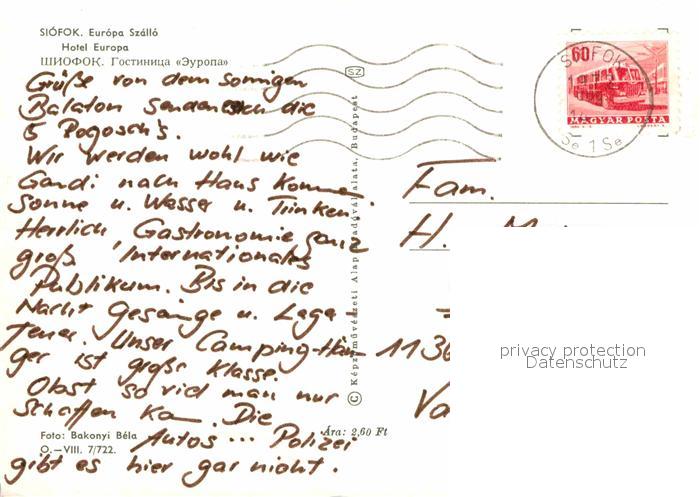 SIÓFOK. Európa Szálló
Hotel Europa
ШИОФОК. Гостиница «Эуропа»
Grüße von dem sonnigen
Balaton senden euch die
5 Pogosch's.
Wir werden wohl wie
Gandi nach Haus kommen.
Sonne u. Wasser u. Trinken.
Herrlich, Gastronomie ganz
groß, Internationales
Publikum. Bis in die
Nacht Gesänge u. Lage-
feuer. Unser Camping-Hän-
ger ist große Klasse.
Obst so viel man nur
schaffen kann. Die
Autos ... Polizei
gibt es hier gar nicht.
Foto: Bakonyi Béla
O.—VIII. 7/722.
Ára: 2,60 Ft
SZ
© Képzőművészeti Alap Kiadóvállalata, Budapest
60
MAGYAR POSTA
SIÓFOK
Se 1 Se
Fam.
H.
1136
Va
privacy protection
Datenschutz